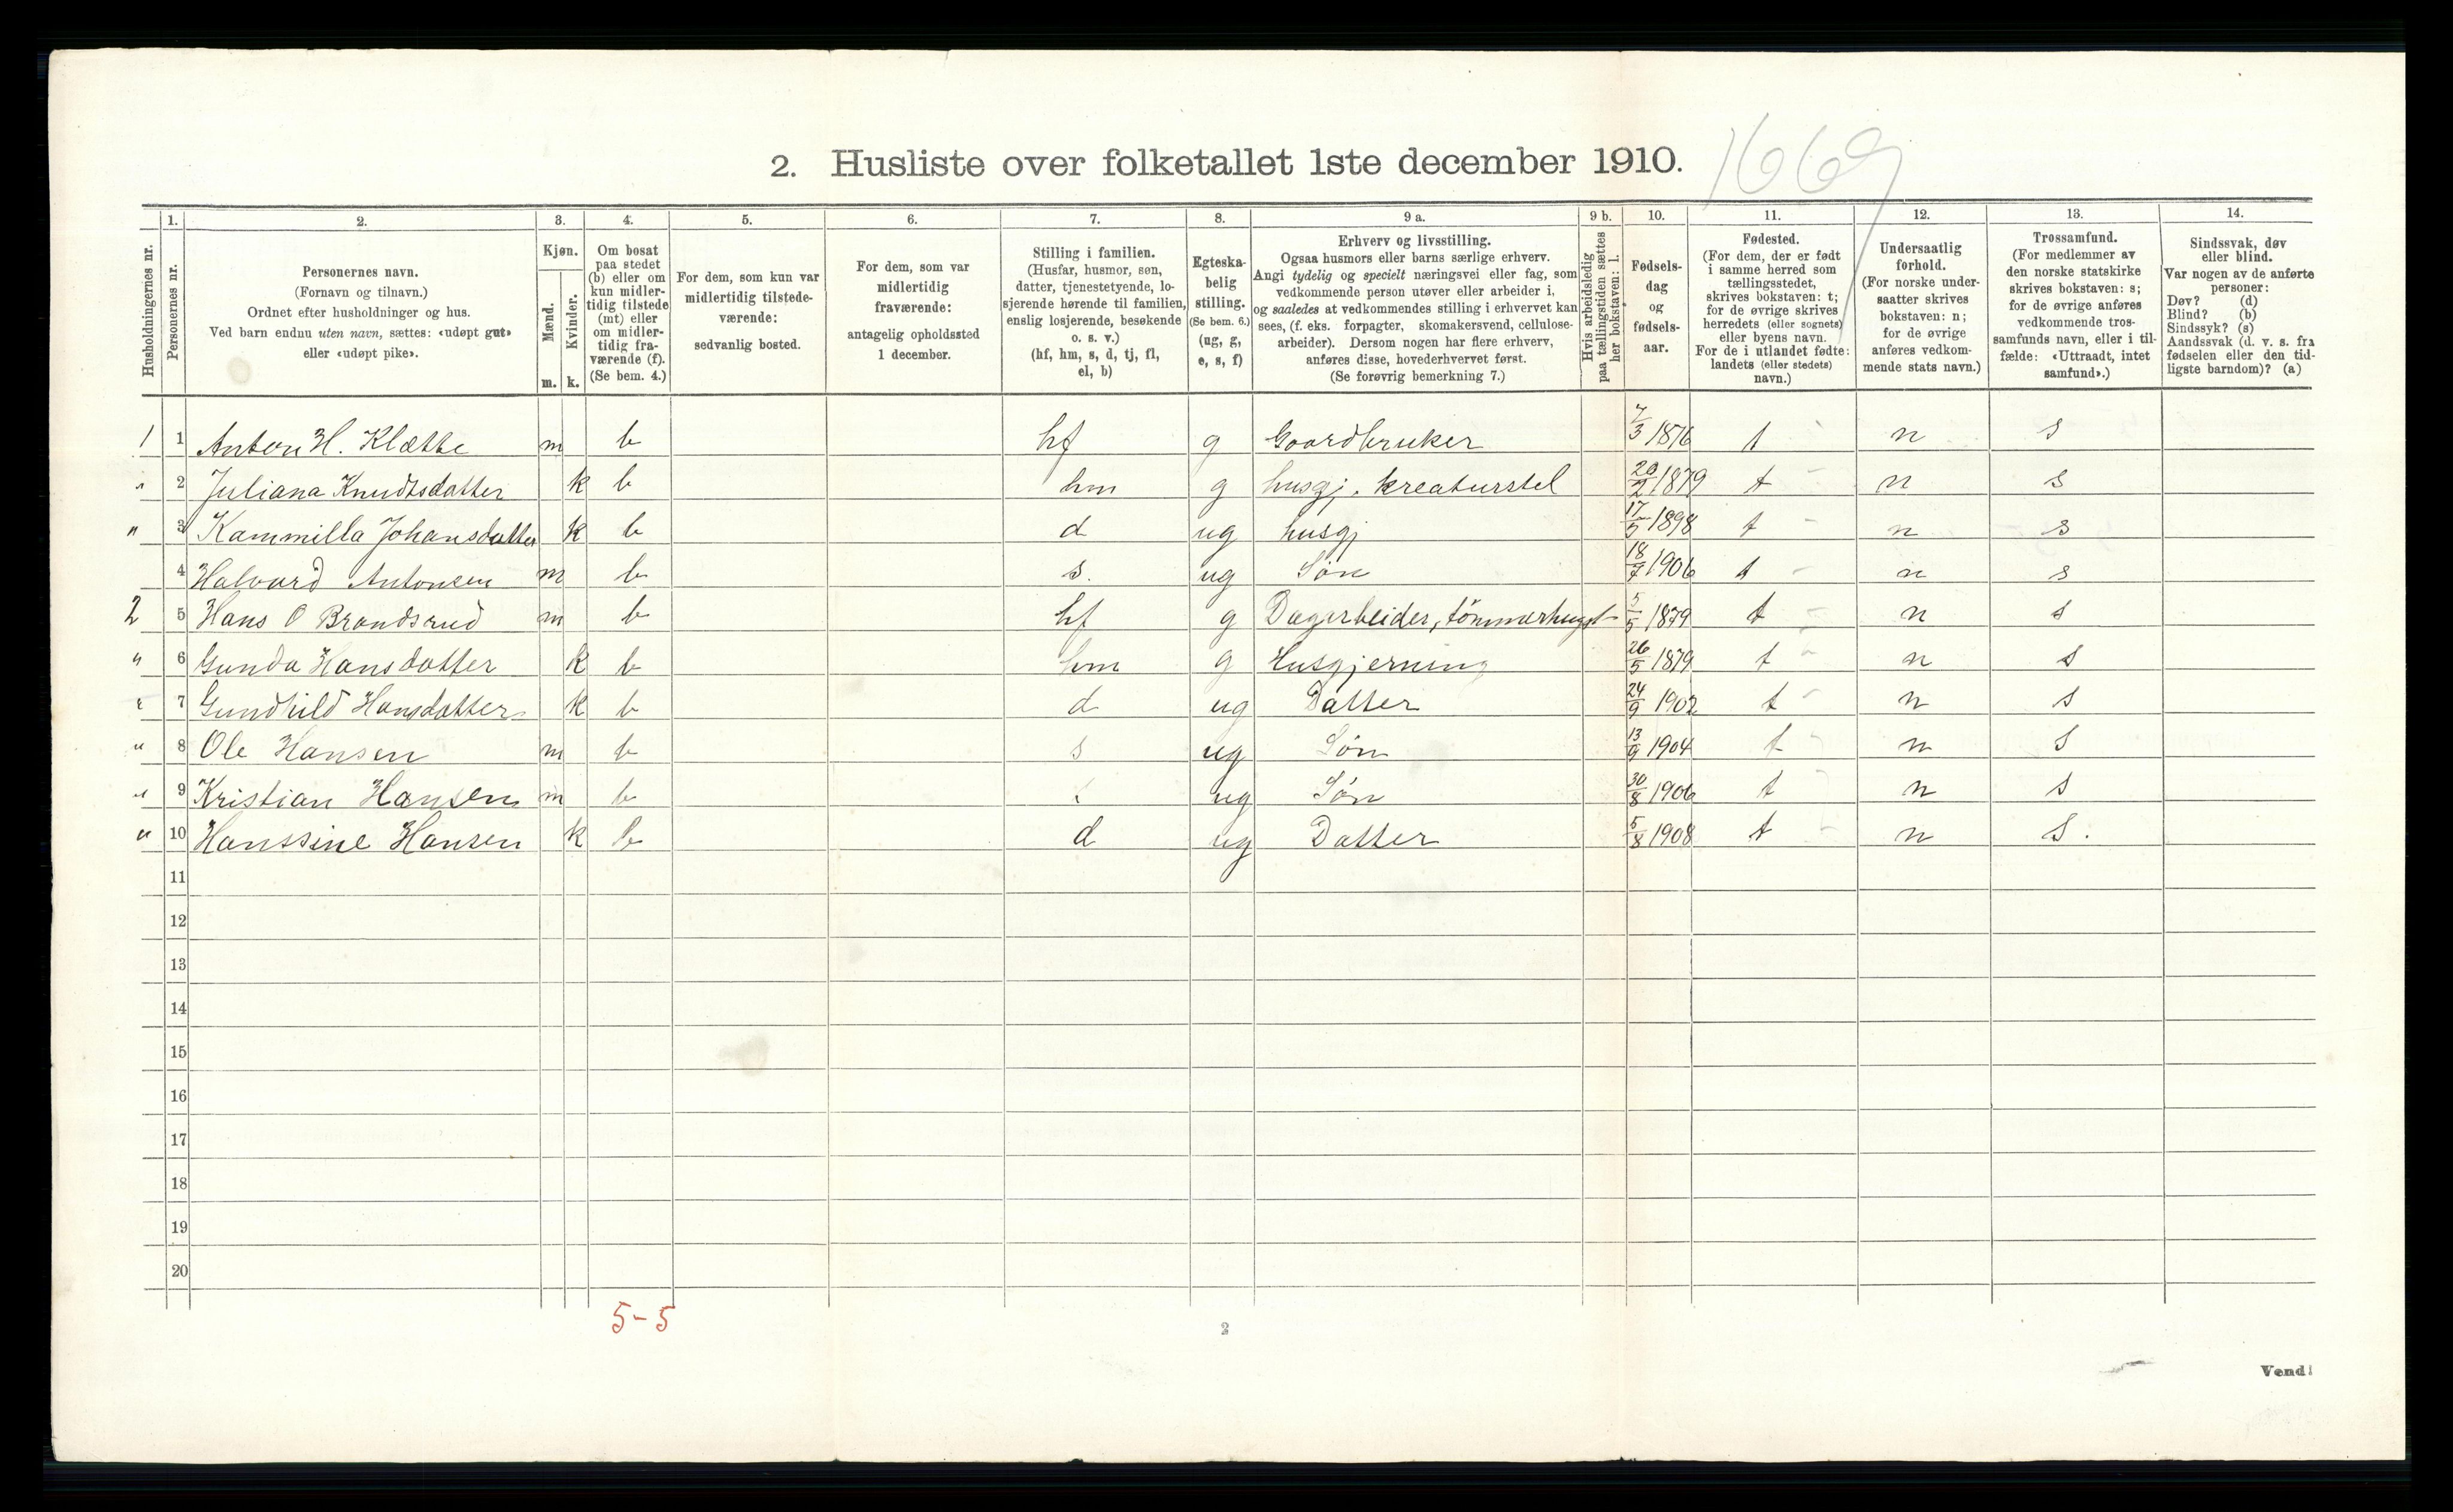 1669
2. Husliste over folketallet 1ste december 1910.
Husholdningernes nr.
1. Personernes nr.
2. Personernes navn. (Fornavn og tilnavn.) Ordnet efter husholdninger og hus. Ved barn endnu uten navn, sættes: «udøpt gut» eller «udøpt pike».
3. Kjøn. Mænd. m. Kvinder. k.
4. Om bosat paa stedet (b) eller om kun midlertidig tilstede (mt) eller om midlertidig fraværende (f). (Se bem. 4.)
5. For dem, som kun var midlertidig tilstedeværende: sedvanlig bosted.
6. For dem, som var midlertidig fraværende: antagelig opholdssted 1 december.
7. Stilling i familien. (Husfar, husmor, søn, datter, tjenestetyende, losjerende hørende til familien, enslig losjerende, besøkende o. s. v.) (hf, hm, s, d, tj, fl, el, b)
8. Egteskabelig stilling. (Se bem. 6.) (ug, g, e, s, f)
9 a. Erhverv og livsstilling. Ogsaa husmors eller barns særlige erhverv. Angi tydelig og specielt næringsvei eller fag, som vedkommende person utøver eller arbeider i, og saaledes at vedkommendes stilling i erhvervet kan sees, (f. eks. forpagter, skomakersvend, cellulosearbeider). Dersom nogen har flere erhverv, anføres disse, hovederhvervet først. (Se forøvrig bemerkning 7.)
9 b. Hvis arbeidsledig paa tællingstiden sættes her bokstaven: l.
10. Fødselsdag og fødselsaar.
11. Fødested. (For dem, der er født i samme herred som tællingsstedet, skrives bokstaven: t; for de øvrige skrives herredets (eller sognets) eller byens navn. For de i utlandet fødte: landets (eller stedets) navn.)
12. Undersaatlig forhold. (For norske undersaatter skrives bokstaven: n; for de øvrige anføres vedkommende stats navn.)
13. Trossamfund. (For medlemmer av den norske statskirke skrives bokstaven: s; for de øvrige anføres vedkommende trossamfunds navn, eller i tilfælde: «Uttraadt, intet samfund».)
14. Sindssvak, døv eller blind. Var nogen av de anførte personer: Døv? (d) Blind? (b) Sindssyk? (s) Aandssvak (d. v. s. fra fødselen eller den tidligste barndom)? (a)
1 1 Anton H. Klætte m b hf g Gaardbruker 7/3 1876 t n s
" 2 Juliana Knudtsdatter k b hm g husgj. kreaturstel 20/2 1879 t n s
" 3 Kammilla Johansdatter k b d ug husgj 17/5 1898 t n s
4 Halvard Antonsen m b s. ug Søn 18/7 1906 t n s
2 5 Hans O Brandsrud m b hf g Dagarbeider, tömmerhugst 5/5 1879 t n s
" 6 Gunda Hansdatter k b hm g Husgjerning 26/5 1879 t n s
" 7 Gundhild Hansdatter k b d ug Datter 24/9 1902 t n s
" 8 Ole Hansen m b s ug Søn 13/9 1904 t n s
" 9 Kristian Hansen m b ug Søn 30/8 1906 t n s
" 10 Hanssine Hansen k b d ug Datter 5/8 1908 t n s.
11
12
13
14
15
16
17
18
19
20
5-5
2
Vend!